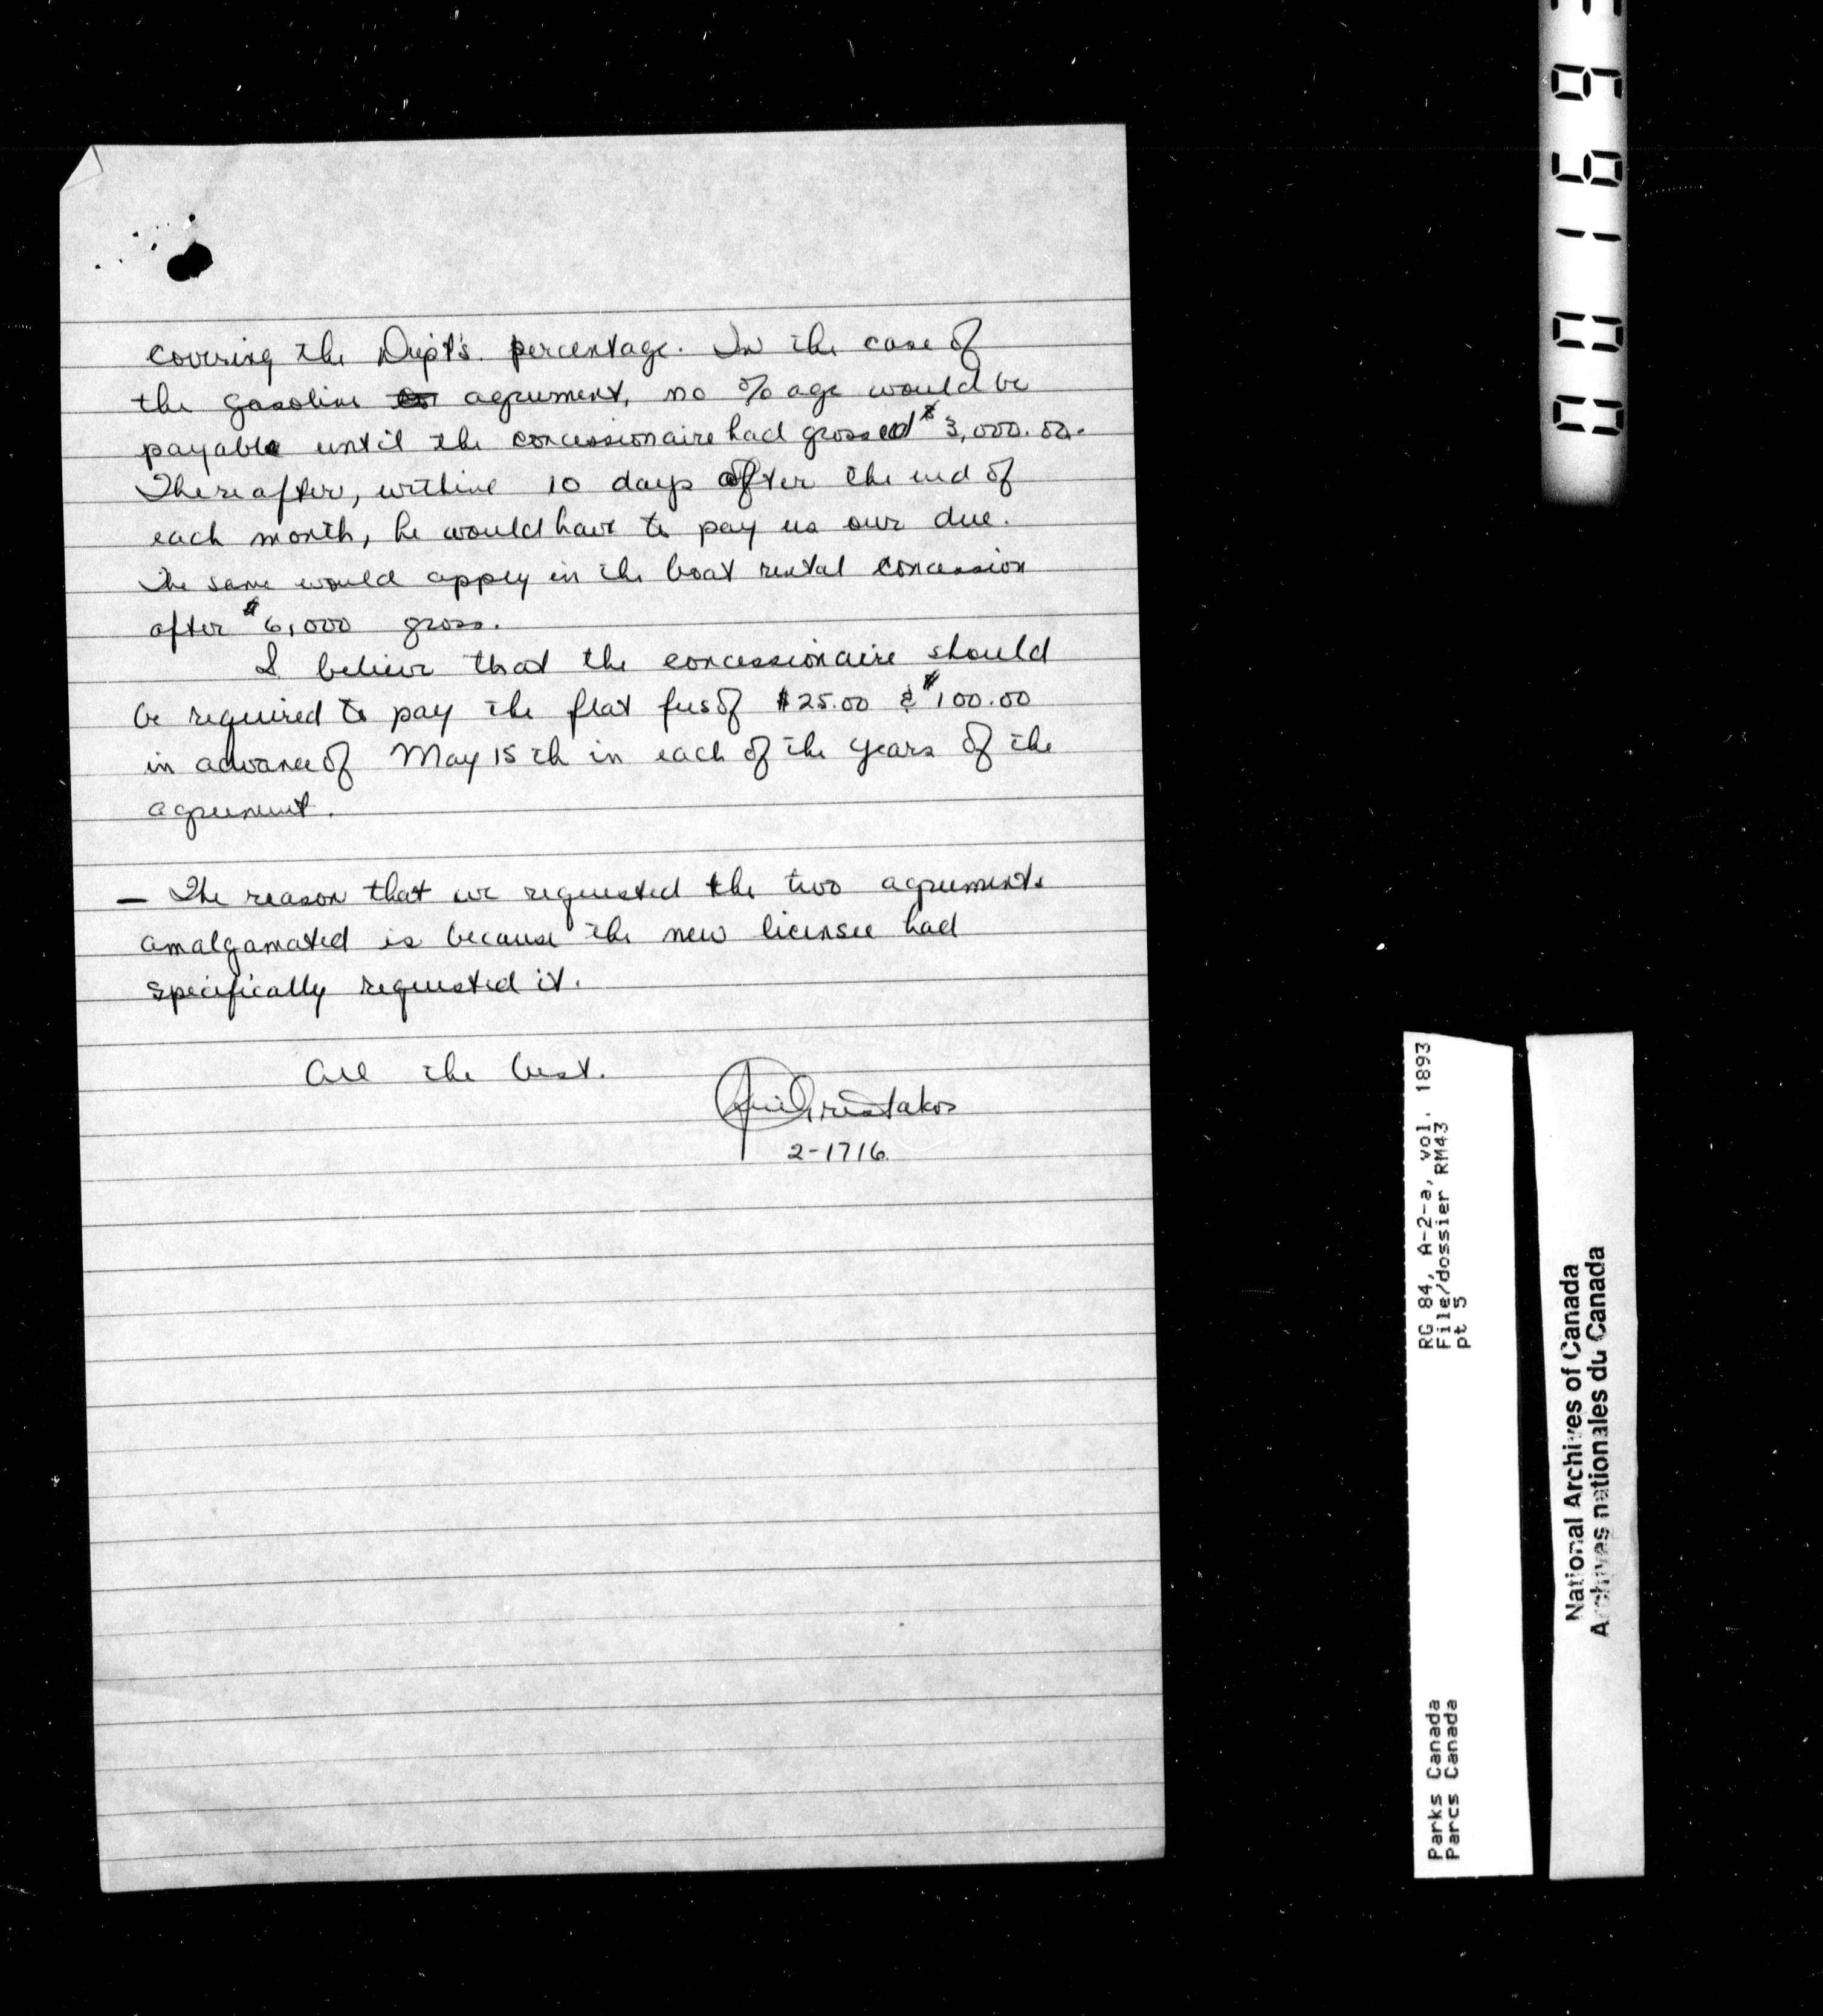 covering the Dept's. percentage. In the case of
the gasoline agreement, no %age would be
payable until the concessionaire had grossed $3,000.00.
Thereafter, within 10 days after the end of
each month, he would have to pay us our due.
The same would apply in the boat rental concession
after $6,000 gross.
I believe that the concessionaire should
be required to pay the flat fees of $25.00 & $100.00
in advance of May 15th in each of the years of the
agreement.
— The reason that we requested the two agreements
amalgamated is because the new licensee had
specifically requested it.
All the best.
2-1716
RG 84, A-2-a, vol. 1893
File/dossier RM43
pt 5
Parks Canada
Parcs Canada
National Archives of Canada
Archives nationales du Canada